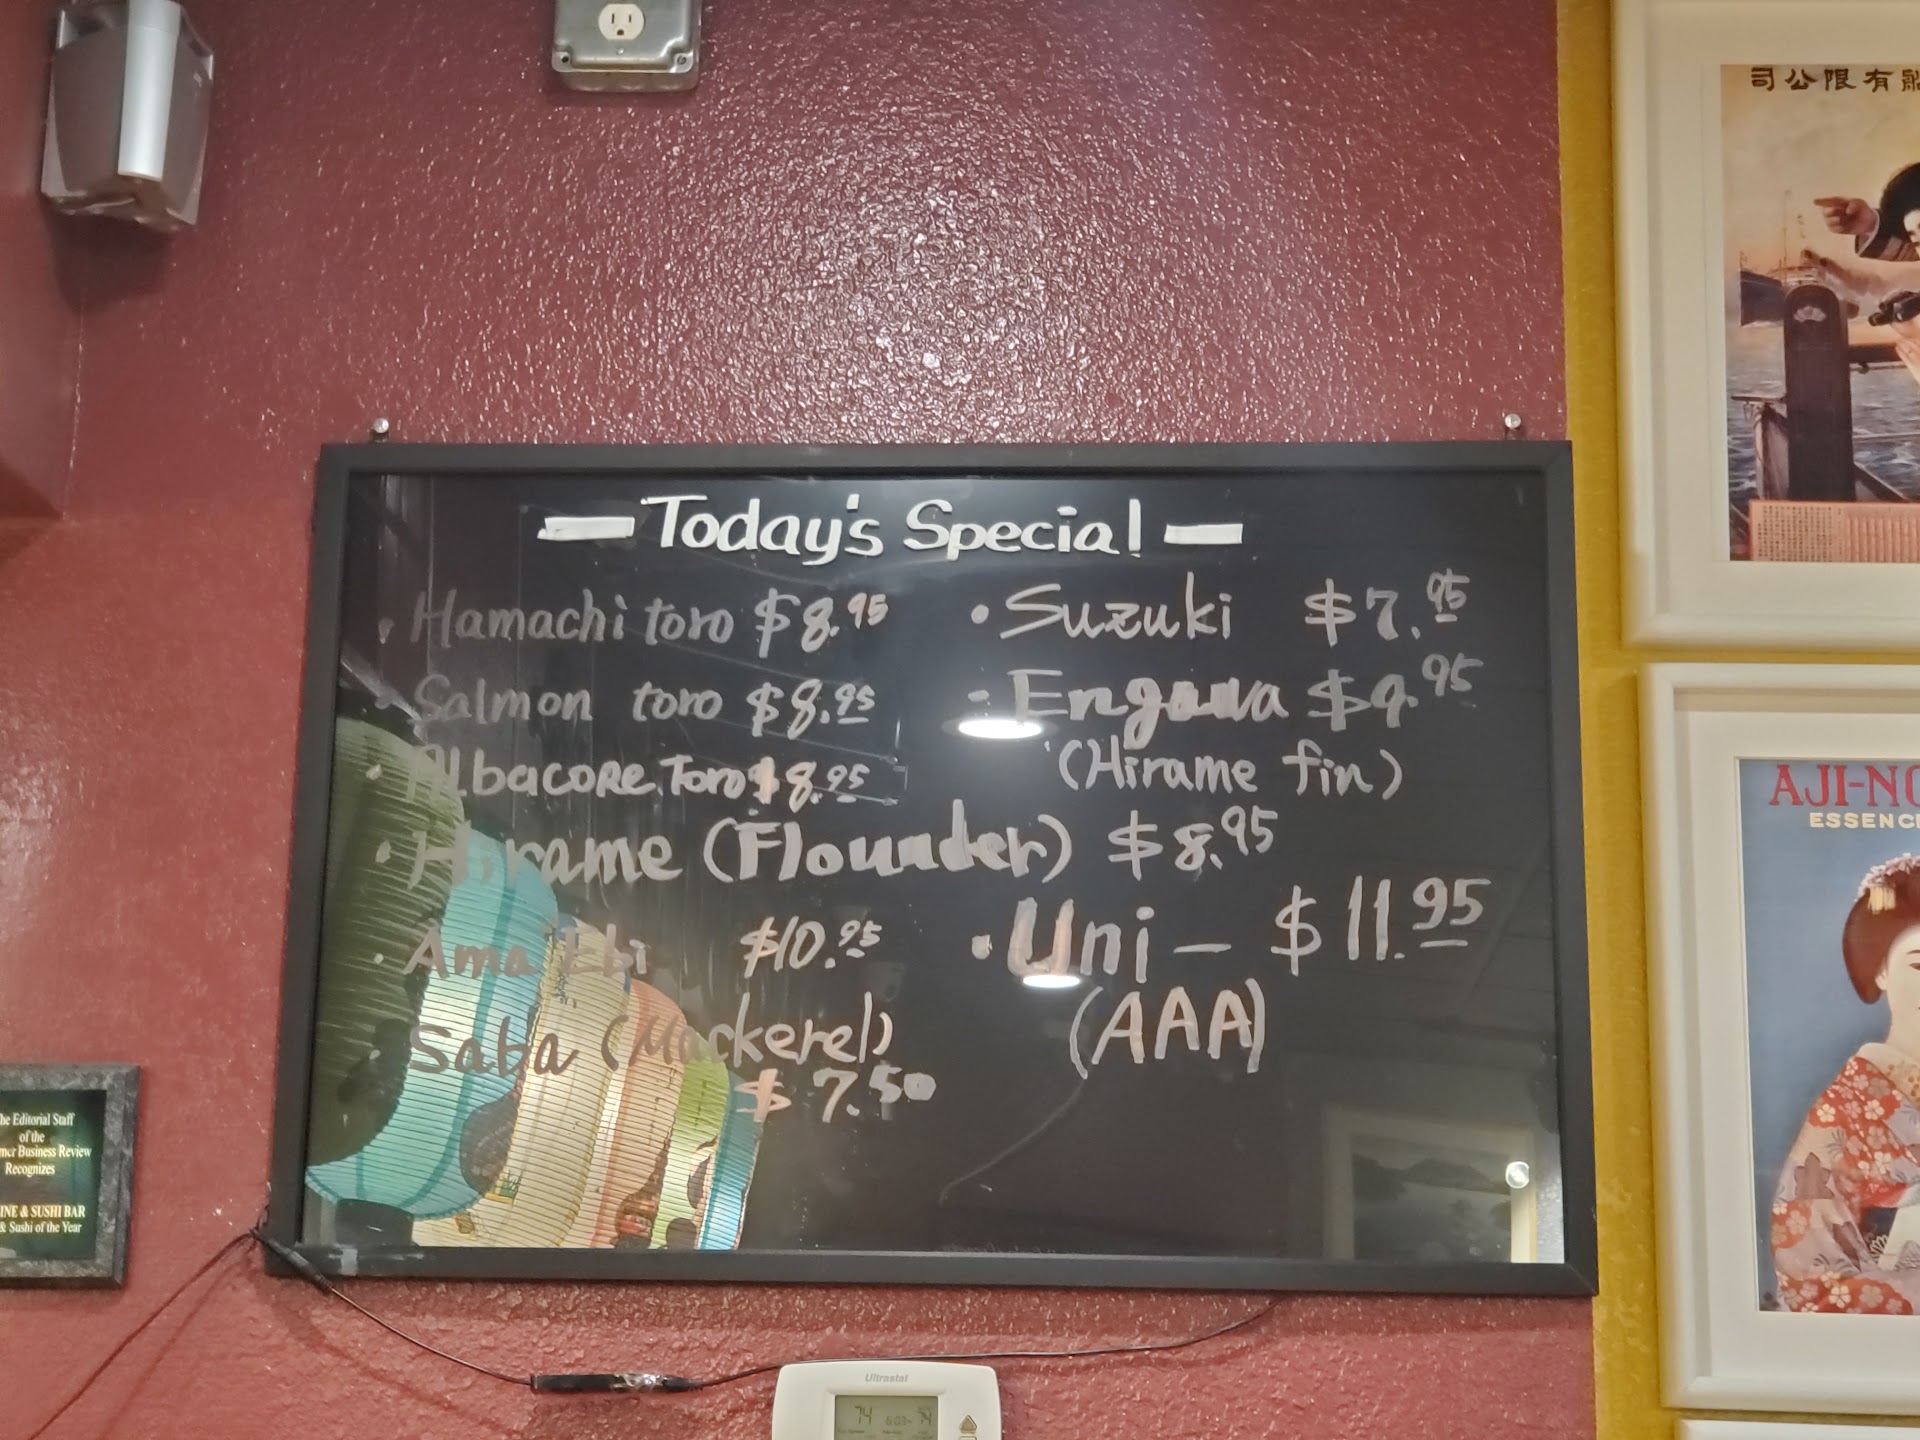 司公限有
- Today's Special -
• Hamachi toro $8.95
• Salmon toro $8.95
• Albacore Toro $8.95
• Hirame (Flounder) $8.95
• Ama Ebi $10.95
• Saba (Mackerel)
$7.50
• Suzuki $7.95
- Engawa $9.95
(Hirame fin)
• Uni - $11.95
(AAA)
Editorial Staff
of the
Business Review
Recognizes
& SUSHI BAR
& Sushi of the Year
AJI-NO
ESSENC
Ultrastat
74 6:03 74